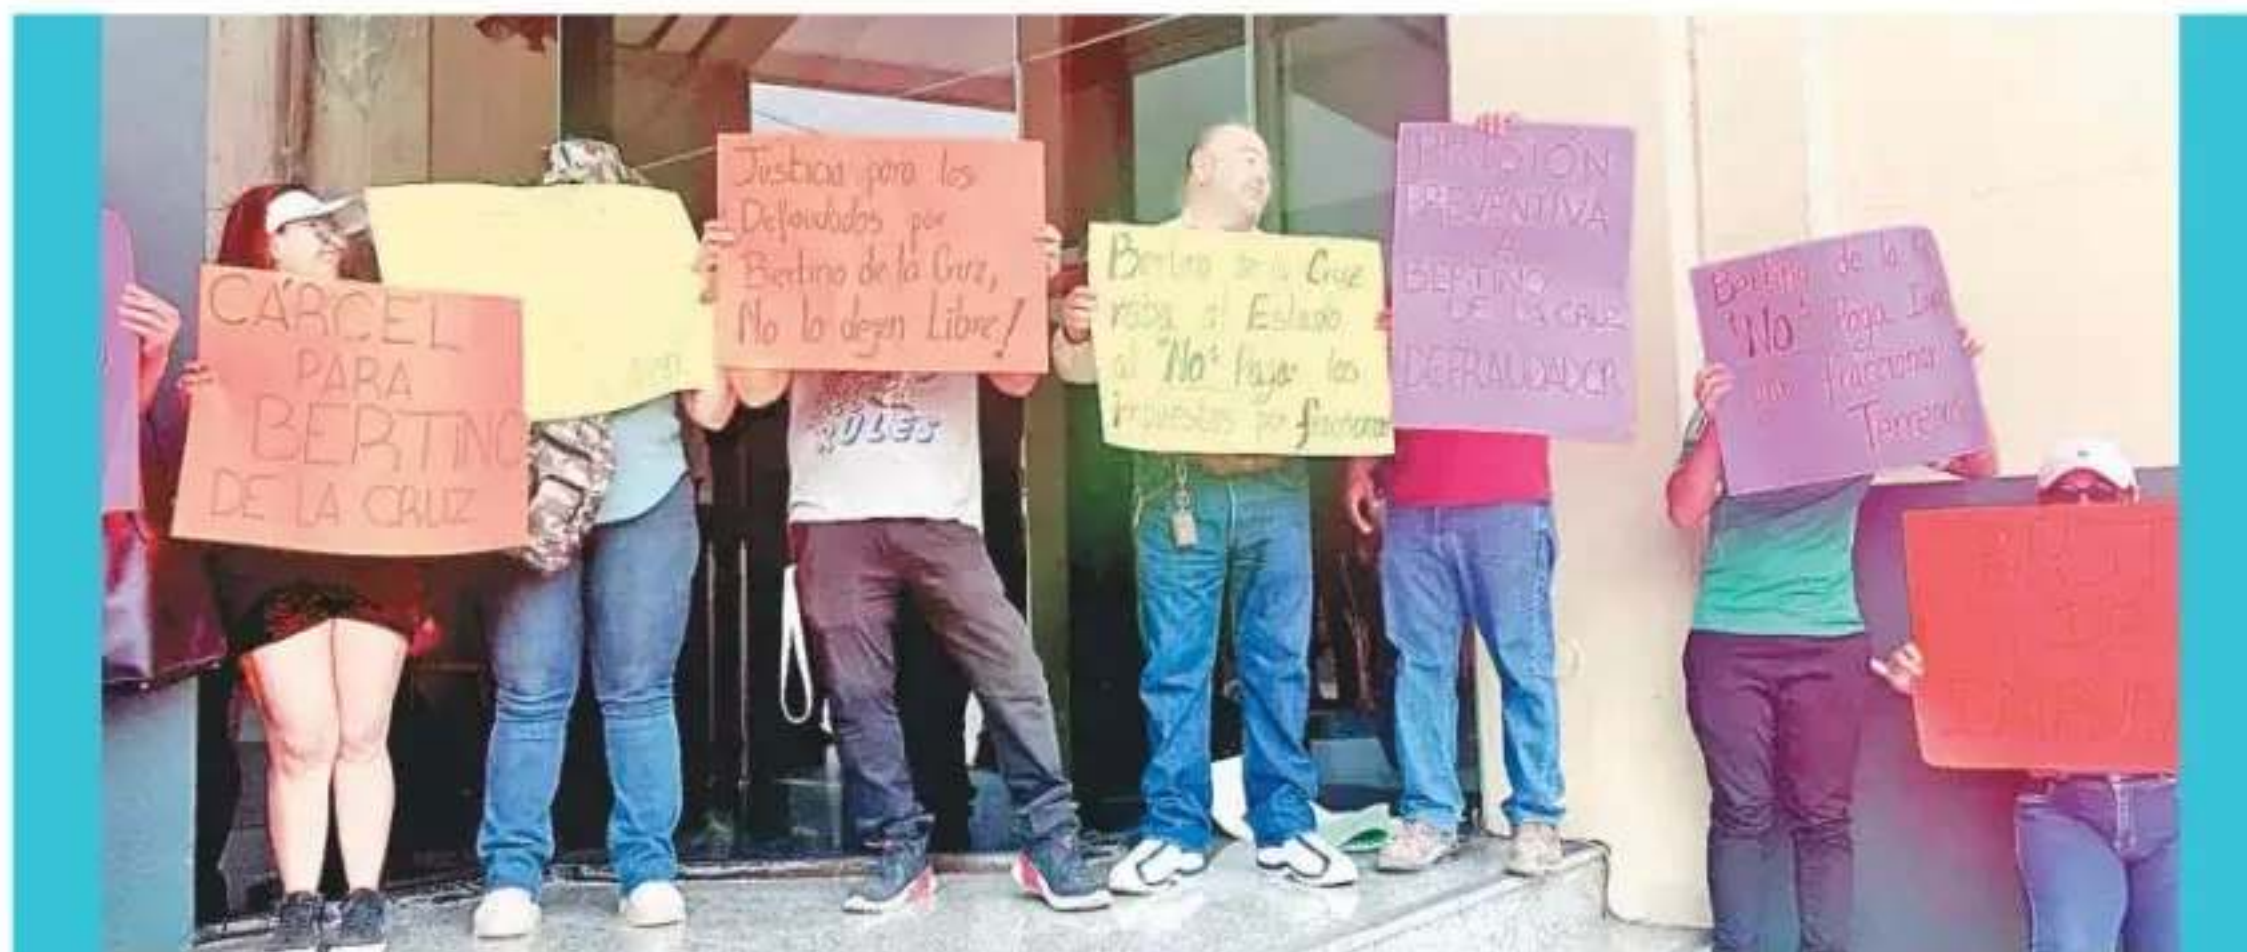 CÁRCEL
PARA
BERTINO
DE LA CRUZ
Justicia para los
Defraudados por
Bertino de la Cruz,
No lo dejen Libre!
RULES
Bertino de la Cruz
roba al Estado
al "No" Pagar los
impuestos por fraccionar
PREVENTIVA
A
BERTINO
DE LA CRUZ
DEFRAUDADOR
Bertino de la
"No" Paga
por fraccionar
Terrenos